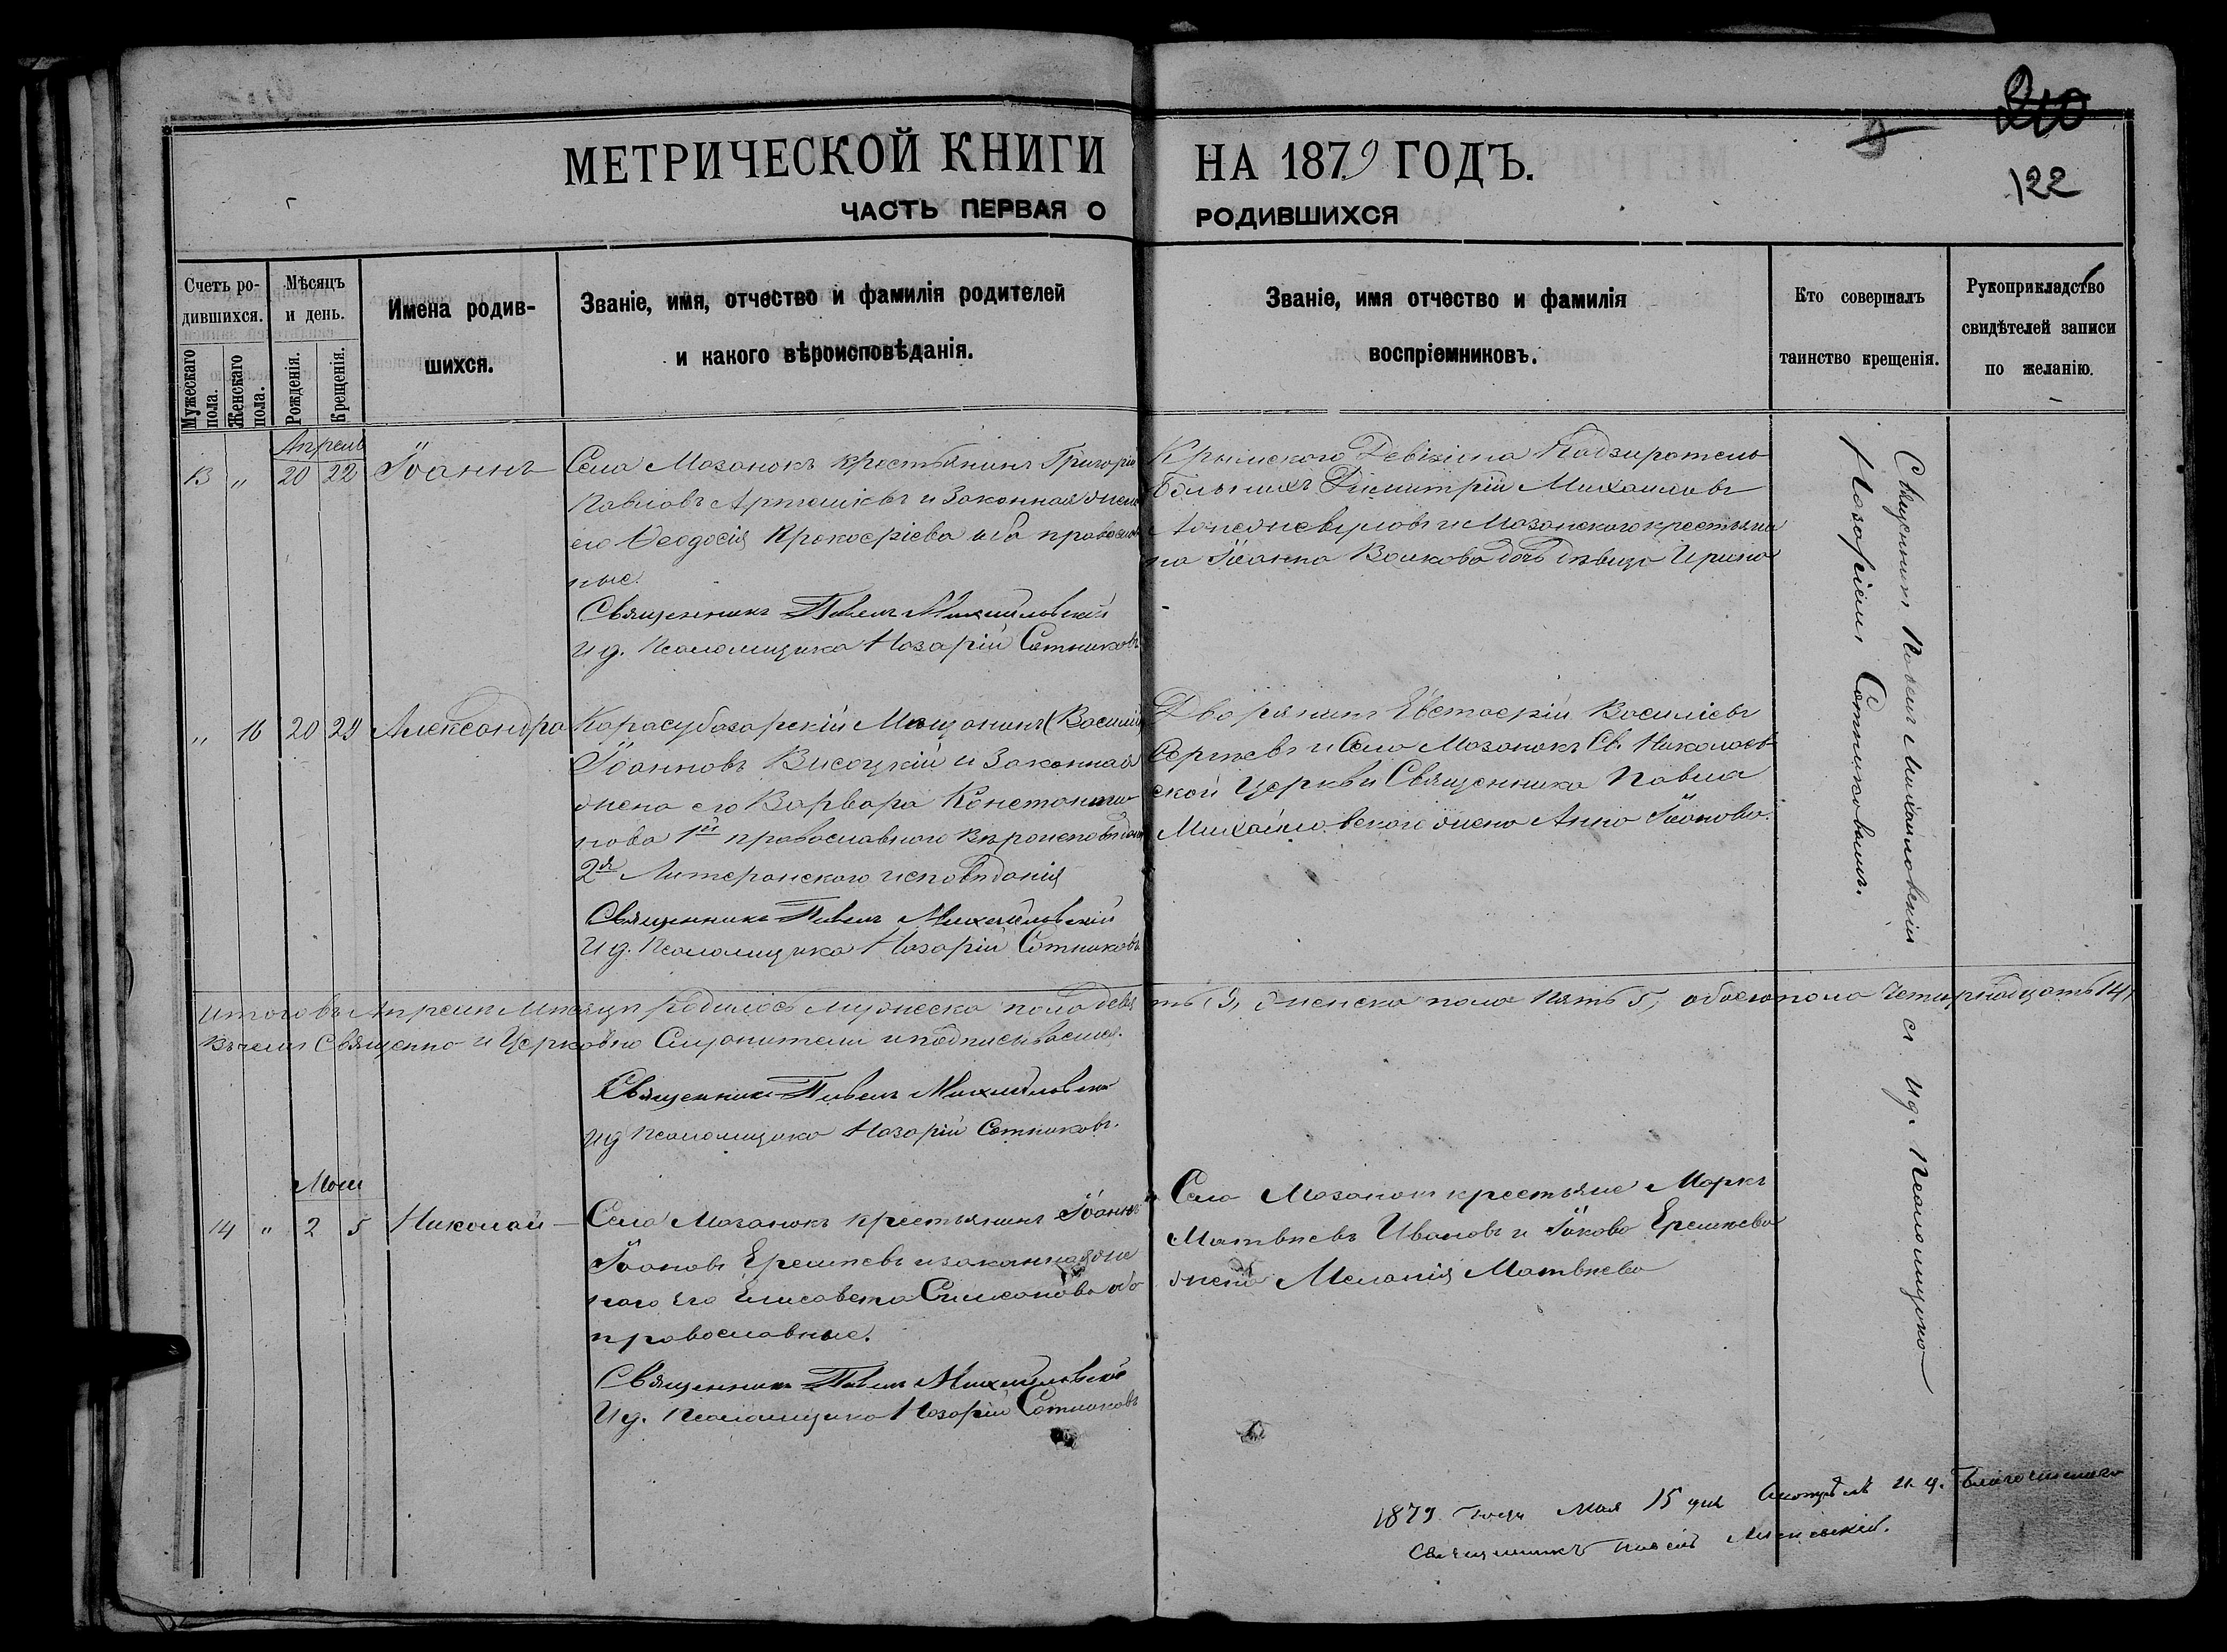 210
122
МЕТРИЧЕСКОЙ КНИГИ НА 1879 ГОДЪ.
ЧАСТЬ ПЕРВАЯ О РОДИВШИХСЯ
Счетъ ро-
дившихся.
Мужескаго пола.
Женскаго пола.
Мѣсяцъ
и день.
Рожденія.
Крещенія.
Имена родив-
шихся.
Званіе, имя, отчество и фамилія родителей
и какого вѣроисповѣданія.
Званіе, имя отчество и фамилія
воспріемниковъ.
Кто совершалъ
таинство крещенія.
Рукоприкладство
свидѣтелей записи
по желанію.
Апрель
13 " 20 22 Іоаннъ
Села Мазанокъ крестьянинъ Григорій
Павловъ и Законная жена
его Ѳеодосія Прокофіева оба православ
ные.
Священникъ Павелъ Михайловскій
И д. Псаломщика Назарій Сотниковъ
Крымскаго Надзиратель
Димитрій Михаиловъ
и Мазанскаго крестьяни
на Іоанна Волкова дочь дѣвица Ирина
" 16 20 29 Александра
Карасубазарскій Мещанинъ Василій
Іоанновъ Висоцкій и Законная
жена его Варвара Константи
нова 1й православнаго вѣроисповѣдан
2я Лютеранского исповѣданія
Священникъ Павелъ Михайловскій
И д. Псаломщика Назарій Сотниковъ
Дворянинъ Евстафій Василіевъ
Сергѣевъ и Села Мазанокъ Св. Николаев
ской Церкви Священника Павла
Михайловскаго жена Анна
Священникъ Павелъ Михайловскій съ И д. Псаломщика
Назаріемъ Сотниковымъ.
Итого въ Апрелѣ Мѣсяцѣ родилось мужеска пола девять 9, женска пола пять 5, обоего пола четырнадцать 14,
Въ чемъ Священно и Церковно Служители и подписываемся.
Священникъ Павелъ Михайловскій
И д Псаломщика Назарій Сотниковъ.
Маій
14 " 2 5 Николай
Села Мазанокъ крестьянинъ Іоаннъ
Іоановъ Еремѣевъ и законная же
на его Елисавета Симеонова оба
православные.
Священникъ Павелъ Михайловскій
И д. Псаломщика Назарій Сотниковъ
Села Мазанокъ крестьяне Маркъ
Матвѣевъ Ивановъ и Іакова Еремѣева
жена Меланія Матвѣева
1879 года Мая 15 дня И. д. Благочиннаго
Священникъ